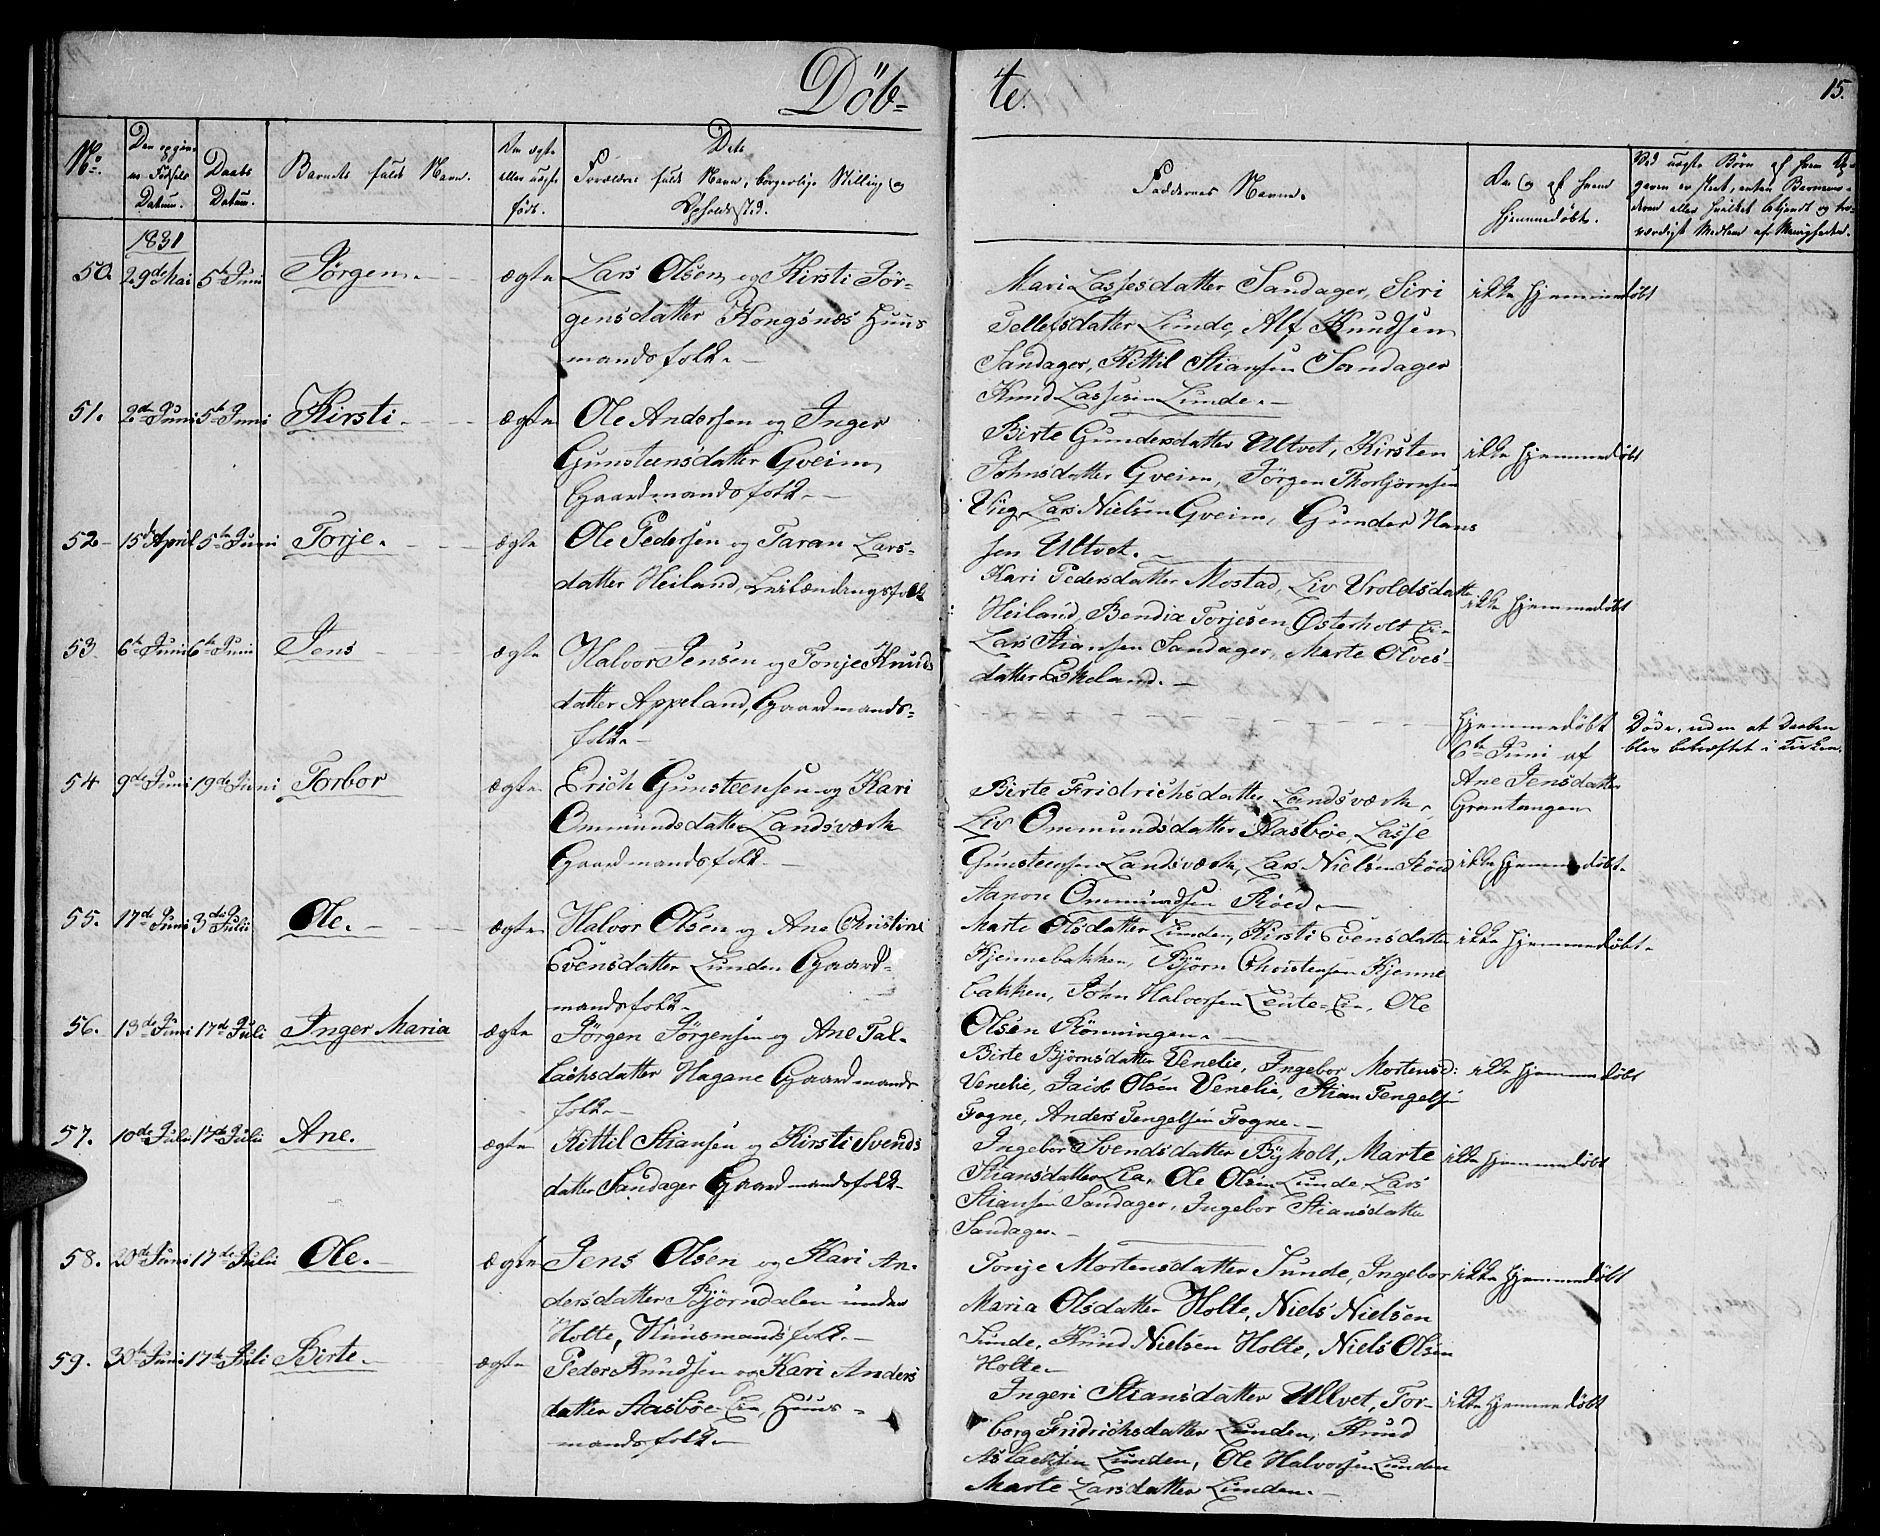 Døb-
te.
15.
No.
Den opgivne Fødsels Datum.
Daabs Datum.
Barnets fulde Navn.
Om ægte eller uægte født.
Dets
Forældres fulde Navn, borgerlige Stilling og
Opholdssted.
Faddernes Navne.
Om og af hvem
hjemmedøbt.
Ved uægte Børn af hvem
1831
50. 29de Mai 5te Juni Jørgen. ægte Lars Olsen og Kirsti Jør-
gensdatter Kongsnæs Huus
mandsfolk.
Mari Lassesdatter Sandager, Siri
Tellefsdatter Lunde, Alf Knudsen
Sandager, Kittil Stiansen Sandager
Knud Lassesen Lunde.
ikke hjemmedøbt
51. 2den Juni 5te Juni Kirsti. ægte Ole Andersen og Inger
Gunsteensdatter Gveim
Gaardmandsfolk.
Birte Gundersdatter Ultvet, Kirsten
Johnsdatter Gveim, Jørgen Thorbjørnsen
Vieg, Lars Nielsen Gveim, Gunder Hans
sen Ultvet.
ikke hjemmedøbt
52 15de April 5te Juni Torje. ægte Ole Pedersen og Taran Lars-
datter Heiland, Leilændingsfolk
Kari Pedersdatter Mostad, Liv Uroldsdatter
Heiland, Bendix Torjesen Østerholt Eie
Lars Stiansen Sandager, Marte Olves-
datter Ekeland.
ikke hjemmedøbt
53 6te Juni 6te Juni Jens ægte Halvor Jensen og Tonje Knuds
datter Appeland, Gaardmands-
folk.
hjemmedøbt
6te Juni af
Ane Jensdatter
Grantangen
Døde, uden at Daaben
blev bekræftet i Kirken.
54 9de Juni 19de Juni Torbor ægte Erich Gunsteensen og Kari
Ommundsdatter Landsværk
Gaardmandsfolk.
Birte Fridrichsdatter Landsværk,
Liv Ommundsdatter Aasbøe, Lasse
Gunsteensen Landsværk, Lars Nielsen Røed
Aanon Ommundsen Røed.
ikke hjemmedøbt.
55. 17de Juni 3die Julii Ole. ægte Halvor Olsen og Ane Christine
Evensdatter Lunden Gaard-
mandsfolk.
Marte Olsdatter Lunden, Kirsti Evensdatter
Kjennebakken, Bjørn Christensen Kjenne
bakken, John Halvorsen Leute-Eie, Ole
Olsen Rønningen.
ikke hjemmedøbt.
56. 13de Juni 17de Juli Inger Maria ægte Jørgen Jørgensen og Ane Tal-
lachsdatter Hagane Gaardmands
folk.
Birte Bjørnsdatter Venelie, Ingebor Mortensd:
Venelie, Jacob Olsen Venelie, Stian Tengelsen
Fogne, Anders Tengelsen Fogne.
ikke hjemmedøbt
57. 10de Juli 17de Julii Ane. ægte Kittil Stiansen og Kirsti Svends
datter Sandager Gaardmandsfolk.
Ingebor Svendsdatter Byholt, Marte
Stiansdatter Lia, Ole Olsen Lunde, Lars
Stiansen Sandager, Ingebor Stiansdatter
Sandager.
ikke hjemmedøbt
58. 20de Juni 17de Julii Ole. ægte Jens Olsen og Kari An-
dersdatter Bjørndalen under
Holte, Huusmandsfolk.
Tonje Mortensdatter Sunde, Ingebor
Maria Olsdatter Holte, Niels Nielsen
Sunde, Knud Nielsen Holte, Niels Olsen
Holte.
ikke hjemmedøbt
59. 30te Juni 17de Juli Birte. ægte Peder Knudsen og Kari Anders
datter Aasbøe Eie, Huus-
mandsfolk.
Ingeri Stiansdatter Ultvet, Tor-
borg Fridrichsdatter Lunden, Knud
Aslacksen Lunden, Ole Halvorsen Lunden
Marte Larsdatter Lunden.
ikke hjemmedøbt